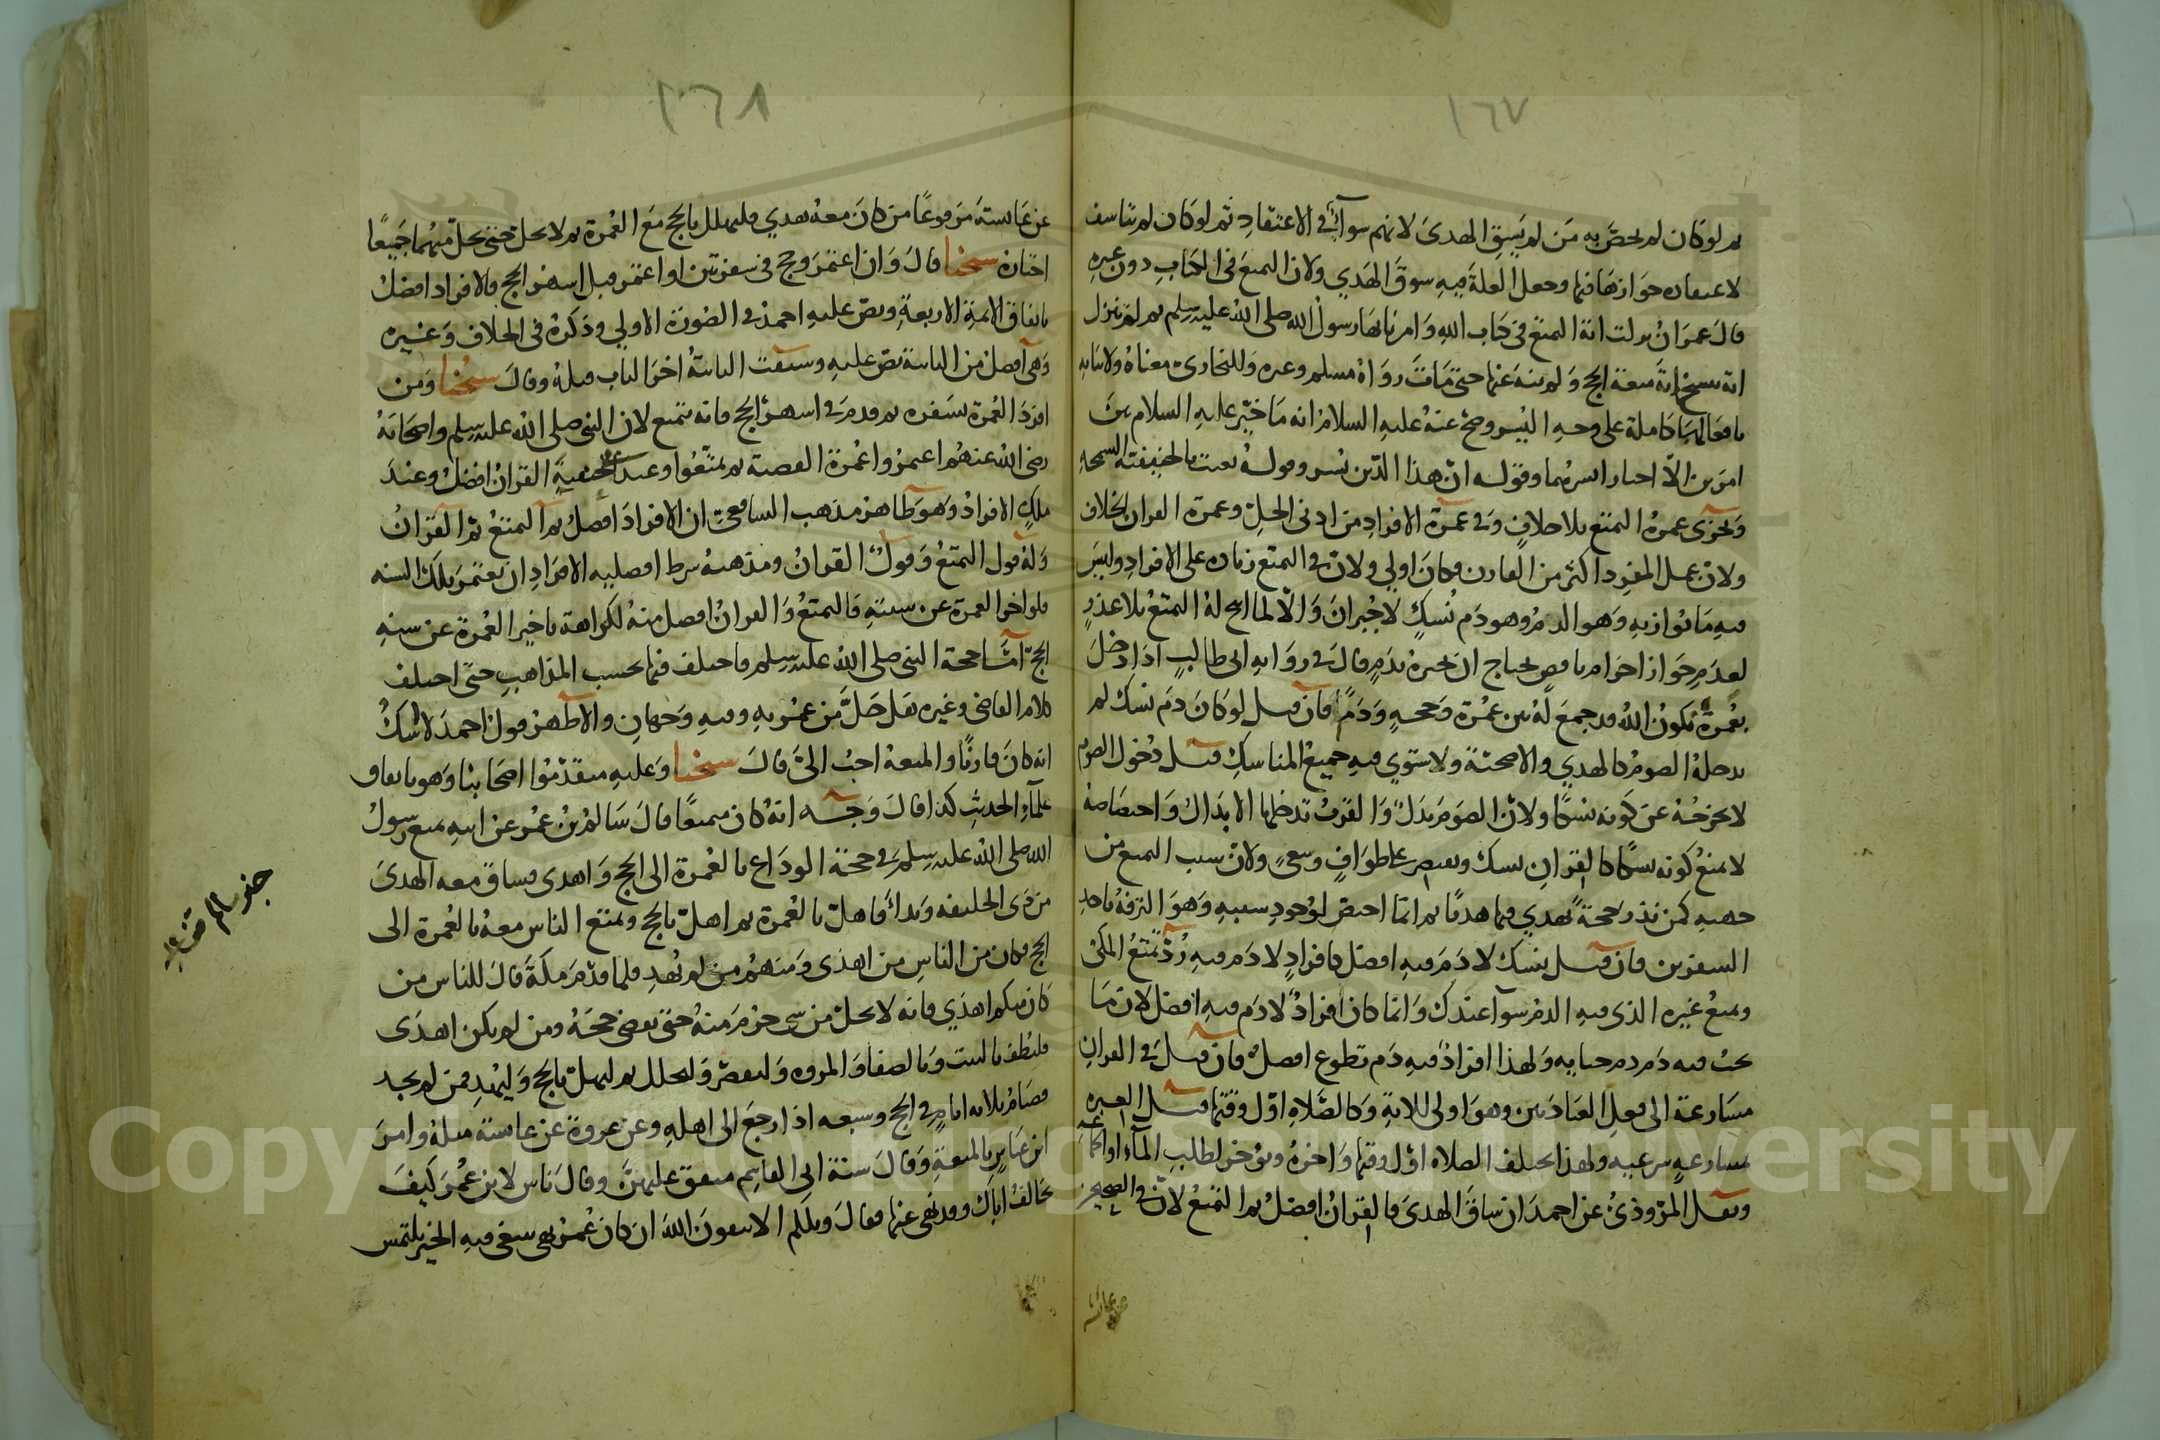 ١٦٧
ثم لو كان لم يخص به من لم يسق الهدى لانهم سوآء في الاعتقاد ثم لو كان لم يتأسف
لاعتقاده جوازها فيها وجعل العلة فيه سوق الهدي ولان التمتع في الكتاب دون غيره
قال عمران نزلت اية التمتع في كتاب الله وامرنا بها رسول الله صلى الله عليه وسلم ثم لم تنزل
اية تنسخ اية متعة الحج ولم ينه عنها حتى مات رواه مسلم وغيره وللبخاري معناه ولاتيانه
بافعالهما كاملة على وجه اليسر وصح عنه عليه السلام انه ما خير عليه السلام بين
امرين الا اختار ايسرهما وقوله ان هذا الدين يسر وقوله بعثت بالحنيفية السمحة
وتجزى عمرة التمتع بلا خلاف وفي عمرة الافراد من ادنى الحل وعمرة القران الخلاف
ولان عمل المفرد اكثر من القارن فكان اولى ولان في التمتع زيادة على الافراد وليس
فيه ما يوازيه وهو الدم وهو دم نسك لا جبران والا لما ابيح له التمتع بلا عذر
لعدم جواز احرام ناقص يحتاج ان يجبره بدم قال في رواية ابي طالب اذا دخل
بعمرة يكون الله قد جمع له بين عمرة وحجة ودم فان قيل لو كان دم نسك لم
يدخله الصوم كالهدي والاضحية ولاستوى فيه جميع المناسك قيل دخول الصوم
لا يخرجه عن كونه نسكا ولان الصوم بدل والقرب تدخلها الابدال واختصاصه
لا يمنع كونه نسكا كالقران نسك ويقتصر على طواف وسعي ولان سبب التمتع من
جهته كمن نذر حجة يهدي فيها هديا ثم انما اختص لوجود سببه وهو الترفه باحد
السفرين فان قيل نسك لا دم فيه افضل كافراد لا دم فيه رد تمتع المكي
وتمتع غيره الذي فيه الدم سوآ عندك وانما كان افراد لا دم فيه افضل لان ما
يجب فيه دم دم جناية ولهذا افراد فيه دم تطوع افضل فان قيل في القران
مسارعة الى فعل العبادتين وهو اولى للاية وكالصلاة اول وقتها قيل العبرة
بمسارعة شرعية ولهذا تختلف الصلاة اول وقتها واخره وتؤخر لطالب المآء او الجماعة
ونقل المروذي عن احمد ان ساق الهدى فالقران افضل ثم التمتع لان في الصحيحين
عن عائشة
١٦٨
عن عايشة مرفوعا من كان معه هدي فليهلل بالحج مع العمرة ثم لا يحل حتى يحل منهما جميعا
اختاره شيخنا قال وان اعتمر وحج في سفرتين او اعتمر قبل اشهر الحج فالافراد افضل
باتفاق الائمة الاربعة ونص عليه احمد في الصورة الاولى وذكره في الخلاف وغيره
وهي افضل من الثانية نص عليه وسبقت الثانية اخر الباب قبله وقال شيخنا ومن
افرد العمرة بسفره ثم قدم في اشهر الحج فانه يتمتع لان النبي صلى الله عليه وسلم واصحابه
رضي الله عنهم اعتمروا عمرة القضية ثم تمتعوا وعند الحنفية القران افضل وعند
ملك الافراد وهو ظاهر مذهب الشافعي ان الافراد افضل ثم التمتع ثم القران
وله قول التمتع وقول القران ومذهبه شرط افضلية الافراد ان يعتمر تلك السنة
فلو اخر العمرة عن سنته فالتمتع والقران افضل منه لكراهة تاخير العمرة عن سنة
الحج اما حجة النبي صلى الله عليه وسلم فاختلف فيها بحسب المذاهب حتى اختلف
كلام القاضي وغيره هل حل من عمرته وفيه وجهان والاظهر قول احمد لا شك
انه كان قارنا والمتعة احب الي قال شيخنا وعليه متقدموا اصحابنا وهو باتفاق
علمآء الحديث كذا قال وجه انه كان متمتعا قال سالم بن عمر عن ابيه تمتع رسول
الله صلى الله عليه وسلم في حجة الوداع بالعمرة الى الحج واهدى فساق معه الهدى
من ذي الحليفة وبدأ فاهل بالعمرة ثم اهل بالحج وتمتع الناس معه بالعمرة الى
الحج فكان من الناس من اهدى ومنهم من لم يهد فلما قدم مكة قال للناس من
كان منكم اهدي فانه لا يحل من شي حرم منه حتى يقضي حجه ومن لم يكن اهدى
فليطف بالبيت وبالصفا والمروه وليقصر وليحلل ثم ليهل بالحج وليهد فمن لم يجد
فصيام ثلاثه ايام في الحج وسبعه اذا رجع الى اهله وعن عروة عن عايشة مثله وامر
ابن عباس بالمتعة وقال سنة ابي القاسم متفق عليهن وقال ناس لابن عمر كيف
تخالف اباك وقد نهى عنها فقال ويلكم الا تتقون الله ان كان عمر نهى يبتغي فيه الخير يلتمس